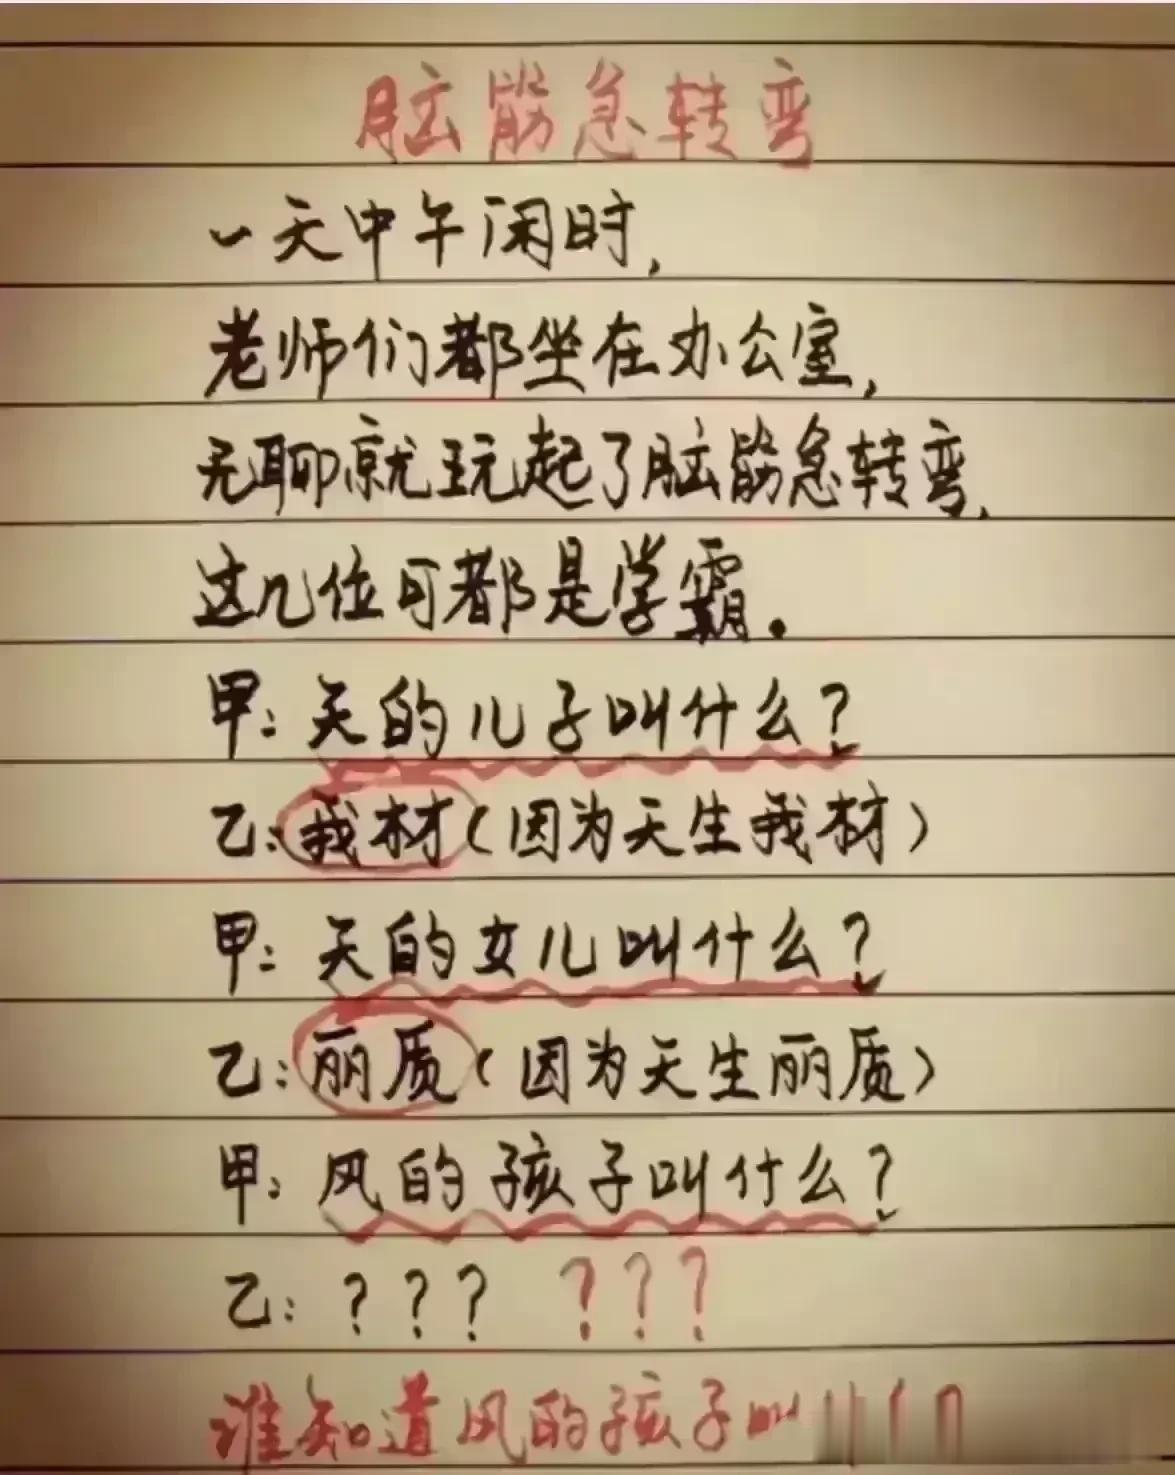 脑筋急转弯
一天中午闲时,
老师们都坐在办公室,
无聊就玩起了脑筋急转弯,
这几位可都是学霸。
甲:天的儿子叫什么?
乙:我材(因为天生我材)
甲:天的女儿叫什么?
乙:丽质(因为天生丽质)
甲:风的孩子叫什么?
乙:??? ???
谁知道风的孩子叫